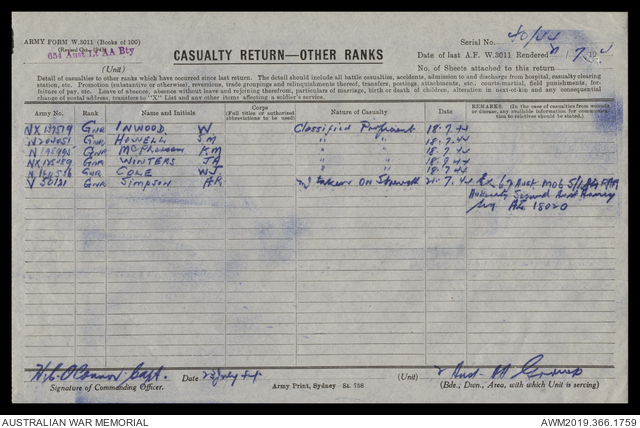 ARMY FORM W.3011 (Books of 100)
Serial No. 40/44
654 Aust Lt AA Bty
(Unit)
CASUALTY RETURN—OTHER RANKS
Date of last A.F. W.3011 Rendered 7 194
No. of Sheets attached to this return
Detail of casualties to other ranks which have occurred since last return. The detail should include all battle casualties, accidents, admission to and discharge from hospital, casualty clearing
station, etc. Promotion (substantive or otherwise), reversions, trade groupings and relinquishments thereof, transfers, postings, attachments, etc., courts-martial, field punishments, for-
feiture of pay, etc. Leave of absence, absence without leave and rejoining therefrom, particulars of marriage, birth or death of children, alteration in next-of-kin and any consequential
change of postal address, transfers to "X" List and any other items affecting a soldier's service.
Army No. Rank. Name and Initials Corps (Full titles or authorised abbreviations to be used) Nature of Casualty Date REMARKS. (In the case of casualties from wounds or disease, any available information for communication to relatives should be stated.)
Gnr INWOOD W Classified Proficient 18.7.44
Gnr HOWELL J M " " 18.7.44
Gnr McPHERSON K M " " 18.7.44
Gnr WINTERS JA " " 18.7.44
Gnr COLE WJ " " 18.7.44
Gnr SIMPSON AR taken on Strength 21.7.44
H.C. O'Connor Capt.
Signature of Commanding Officer.
Date 23 July 44
Army Print, Sydney St. 758
(Unit) 2 Aust AA Group
(Bde., Dwn., Area, with which Unit is serving)
AUSTRALIAN WAR MEMORIAL
AWM2019.366.1759